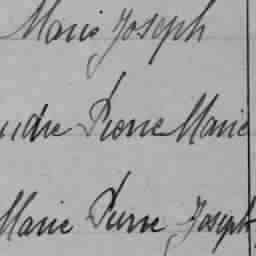 Marie Joseph
Pierre Marie
Marie Pierre Joseph